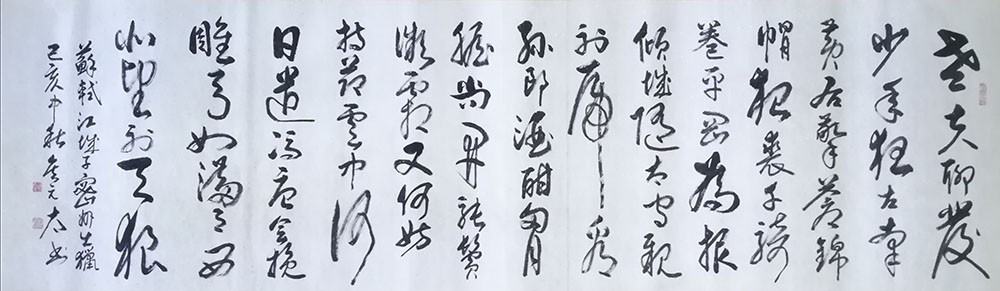 老夫聊發
少年狂左牽
黃右擎蒼錦
帽貂裘千騎
卷平岡為報
傾城隨太守親
射虎看
孫郎酒酣胸
膽尚開張鬢
微霜又何妨
持節雲中何
日遣馮唐會挽
雕弓如滿月西
北望射天狼
蘇軾江城子密州出獵
己亥中秋